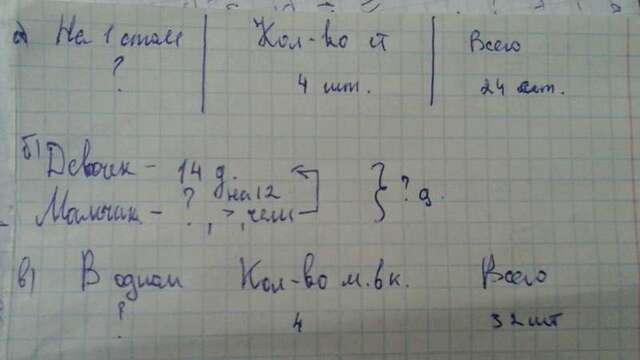 а) На 1 столе Кол-во ст Всего
? 4 шт. 24 шт.
б) Девочек - 14 д.
Мальчик - ?, на 12 >, чем } ? д.
в) В одном Кол-во м. в к. Всего
? 4 32 шт